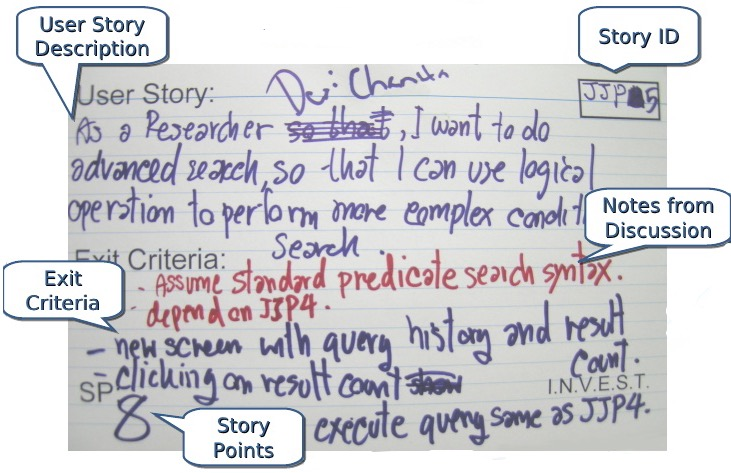 User Story
Description
Story ID
User Story:
JJP 5
As a Researcher so that, I want to do
advanced search, so that I can use logical
operation to perform more complex condit
Search.
Notes from
Discussion
Exit Criteria:
- Assume standard predicate search syntax.
- depend on JJP4.
Exit
Criteria
- new screen with query history and result
count.
- clicking on result count show
SP
I.N.V.E.S.T.
8
execute query same as JJP4.
Story
Points